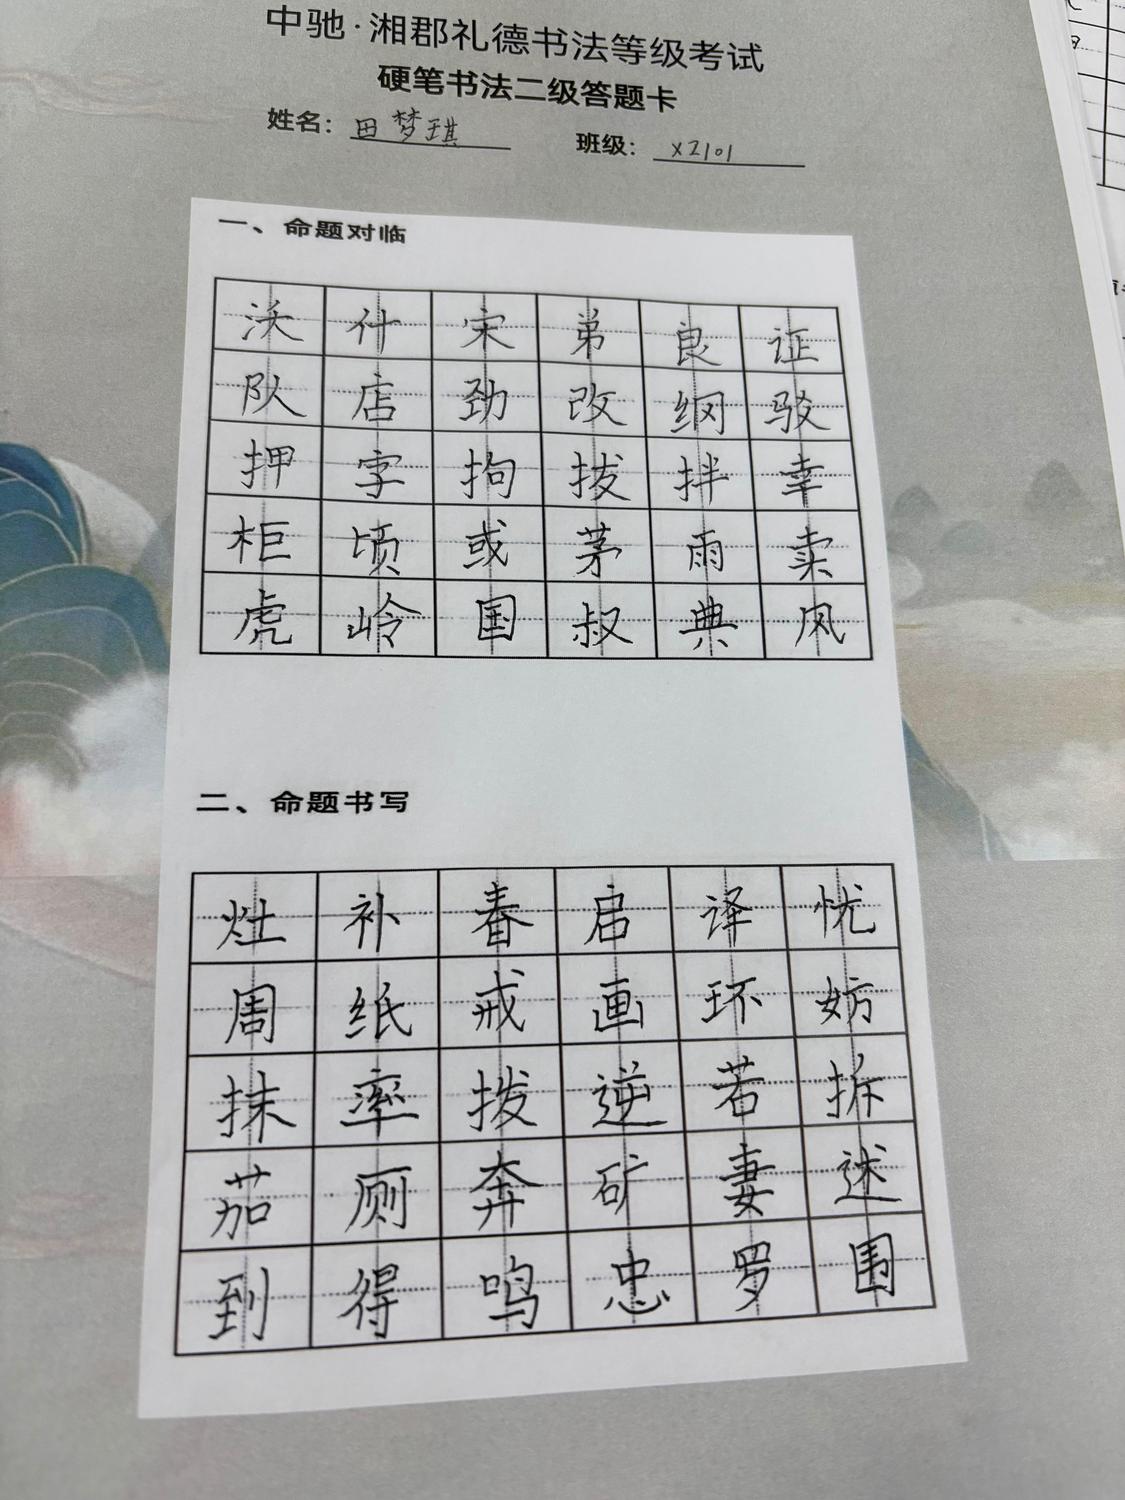 中驰·湘郡礼德书法等级考试
硬笔书法二级答题卡
姓名：田梦琪 班级：X2101
一、命题对临
沃什宋弟良证
队店劲改纲驳
押字拘拔拌幸
柜顷或茅雨卖
虎岭国叔典风
二、命题书写
灶补春启译忧
周纸戒画环妨
抹率拨逆若拆
茄厕奔矿妻述
到得鸣忠罗围